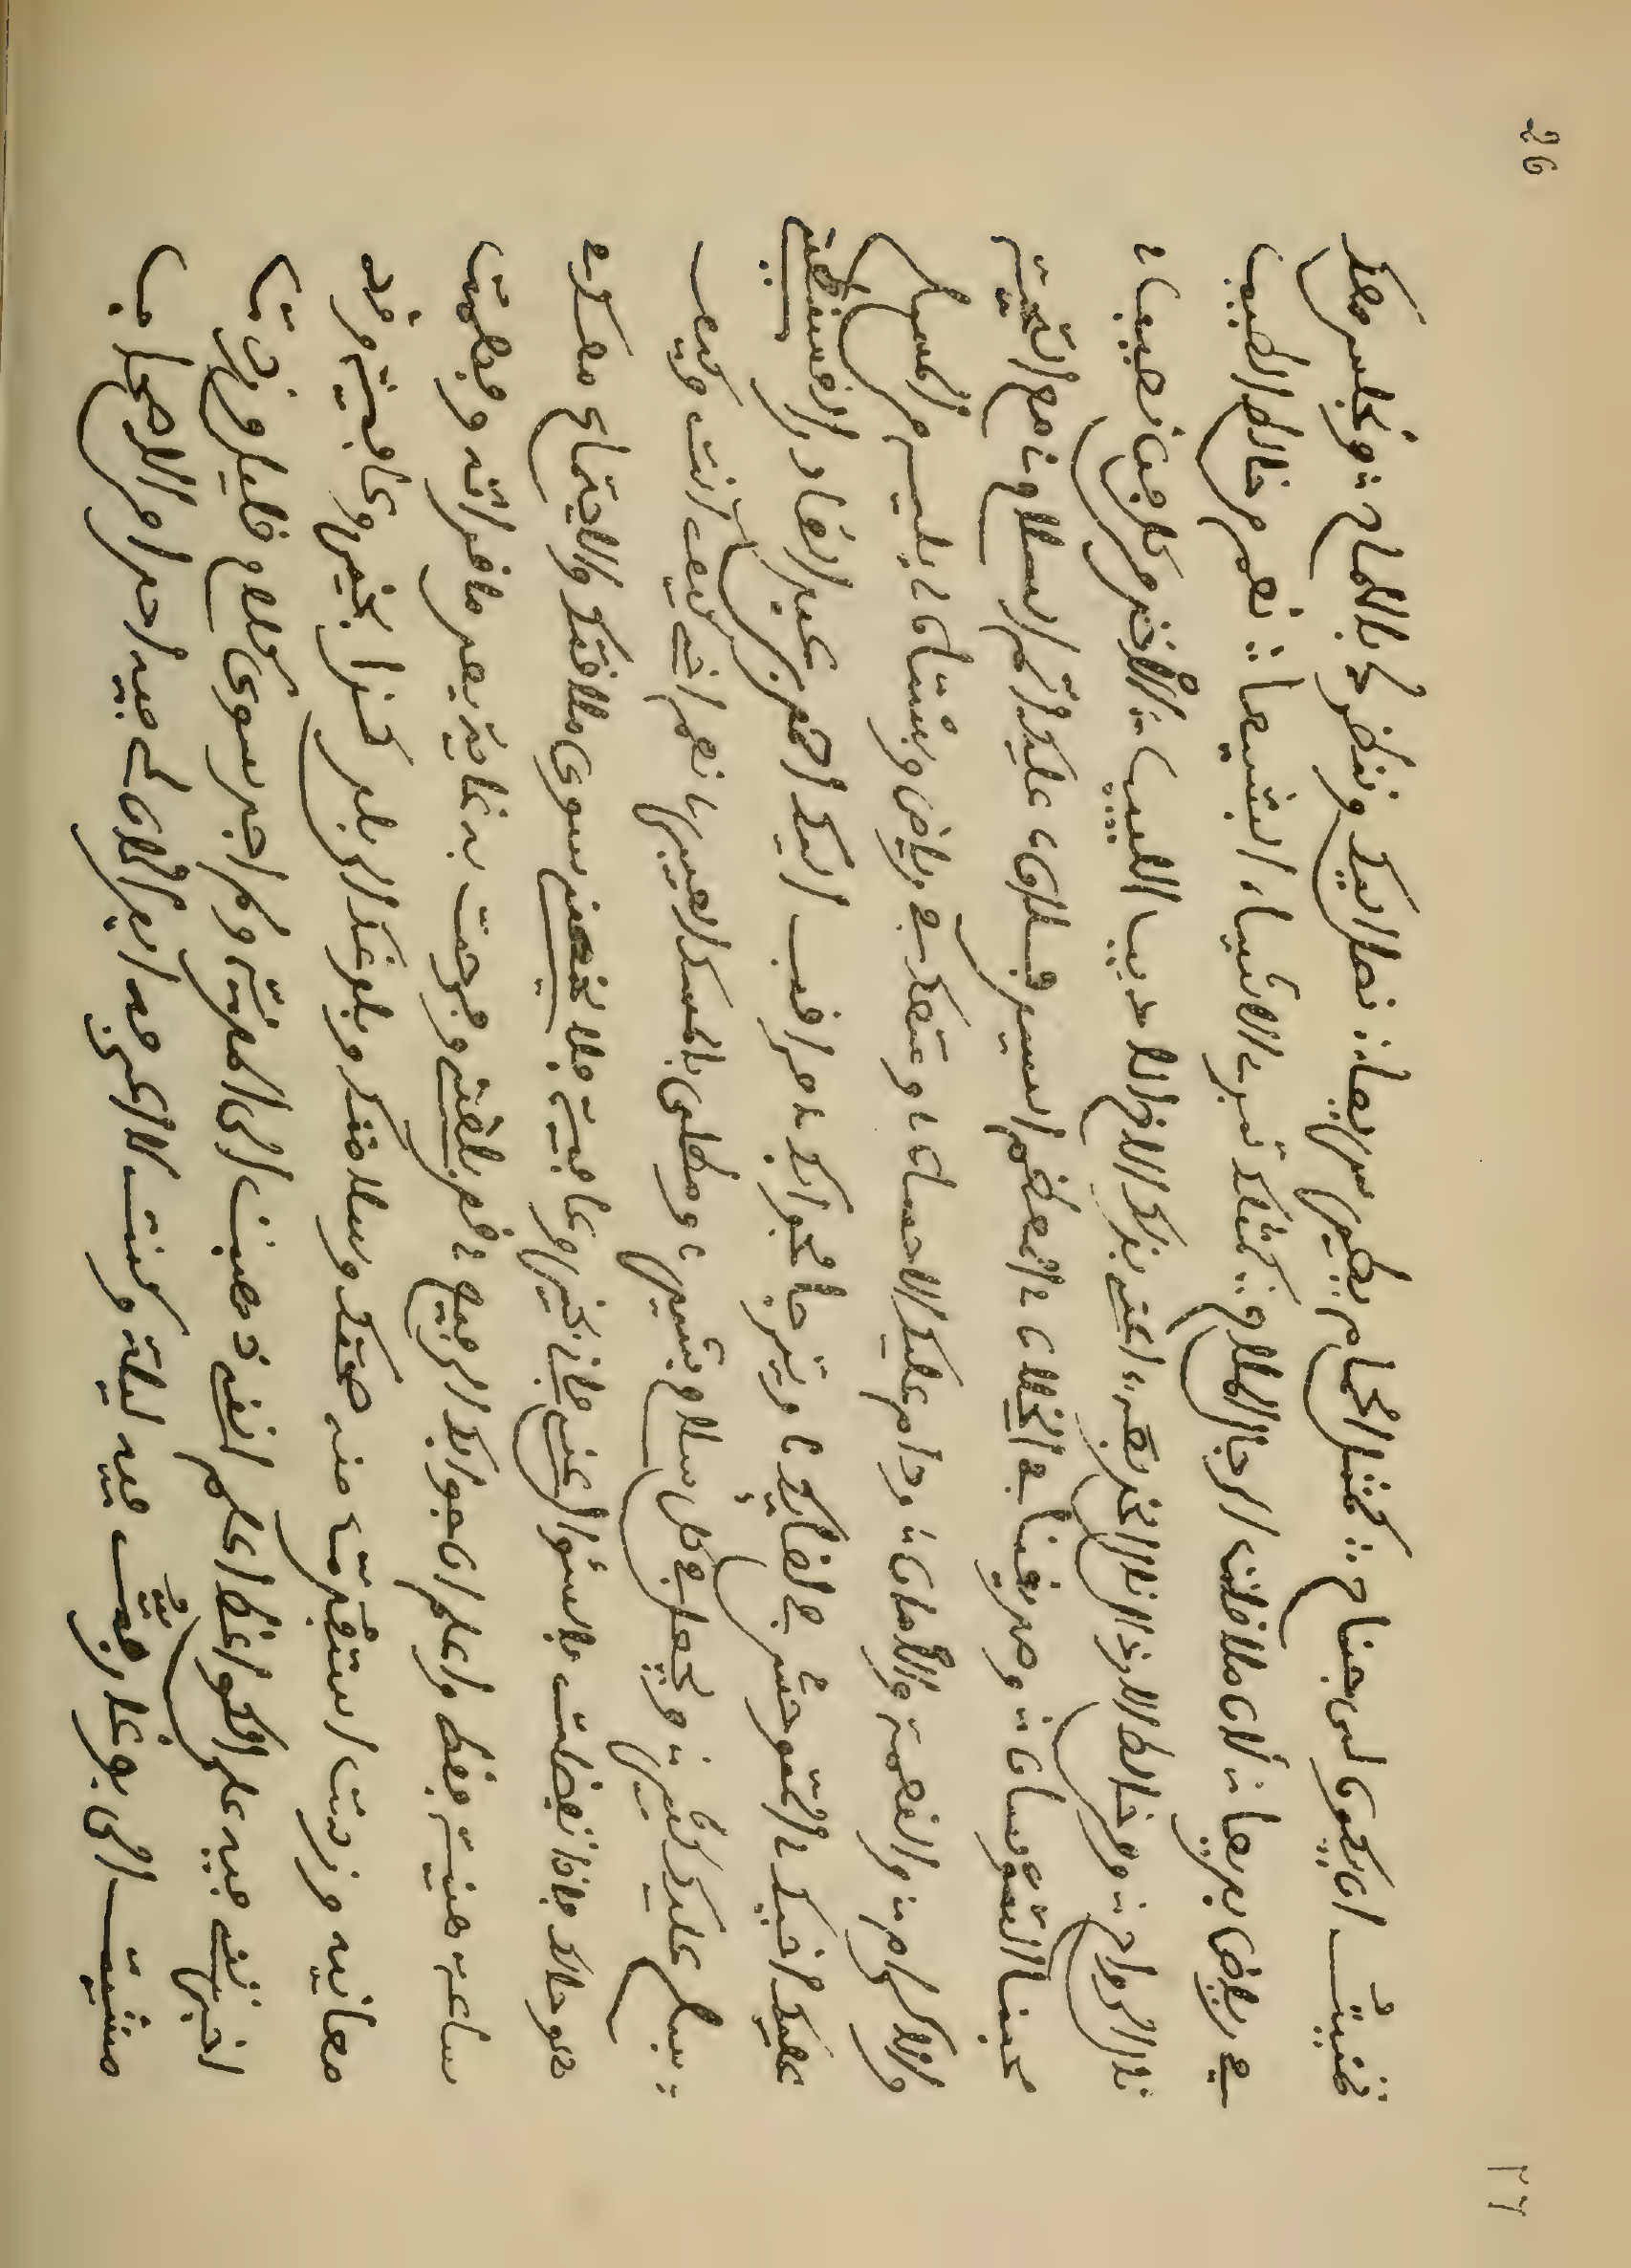 26 ٢٦
تمنيت ان يكون لي جناح، كمثل الحمام يطير سريعا، نصل اليك وننظرك بالملاح، ونجلس معك
في رياض بديعا، لان ملاقات الرجال الملاح، كمثلك تبرء الاشياء البشيعا، نعم من خالط الطبيب
نال الدواء، ومن خالط الارذال نال الخديعة، اعني بذلك الاخ الاديب اللبيب، الآخذ من كل فن نصيبا،
محبنا وصديقنا في الخلان، المعظم السيد فلان، عليكم السلام مع التحية
والاكرام، والنعمة والامان، ودام عليك الاحسان، ومتعك في رياض وبستان، يليه من المسلم
عليك اخيك المتوحش في لقائك، ويترجا لجوابك، مراقب اليك احمد بن عبد القادر القسنطيني
يسلم عليك كثير، ويجعل في كل سلام بشير، ومطلي بالمسك العبير، نعم اخي كيف انت وكيف
هو حالك فاذا تفضلت بالسؤال عني فاني بخير وعافية فلا يخصني سوى ملاقتك والاجتماع معك في
ساعة هنية فقط واعلم ان جوابك الرفيع قد بلغني وفرحت به غاية بعد ما قرأته وفهمت
معانيه وزدت استخبرت منه صحتك وسلامتك وبلوغك الى بلد بخير وعافية وقد
اخبرتني فيه على الكواغظ اعلم انني ذهبت الى المدية ولم اجد سوى كلام قليل وزدت
مشيت الى بوغار بقيت فيه ليلة وكنت لا فيه احد من الاصحاب